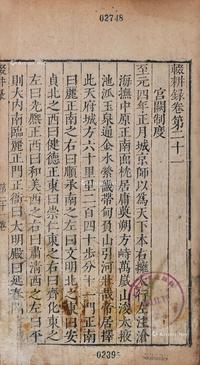 02748
輟耕錄卷第二十一
宮闕制度
至元四年正月城京師以爲天下本右擁太行左注滄
海撫中原正南面枕居庸奠朔方峙萬歲山浚太液
池派玉泉通金水縈畿帶甸負山引河壯哉帝居擇
此天府城方六十里里二百四十步分十一門正南
曰麗正南之右曰順承南之左曰文明北之東曰安
貞北之西曰健德正東曰崇仁東之右曰齊化東之
左曰光熙正西曰和義西之右曰肅清西之左曰平
則大內南臨麗正門正衙曰大明殿曰延春閣
輟耕錄
0239